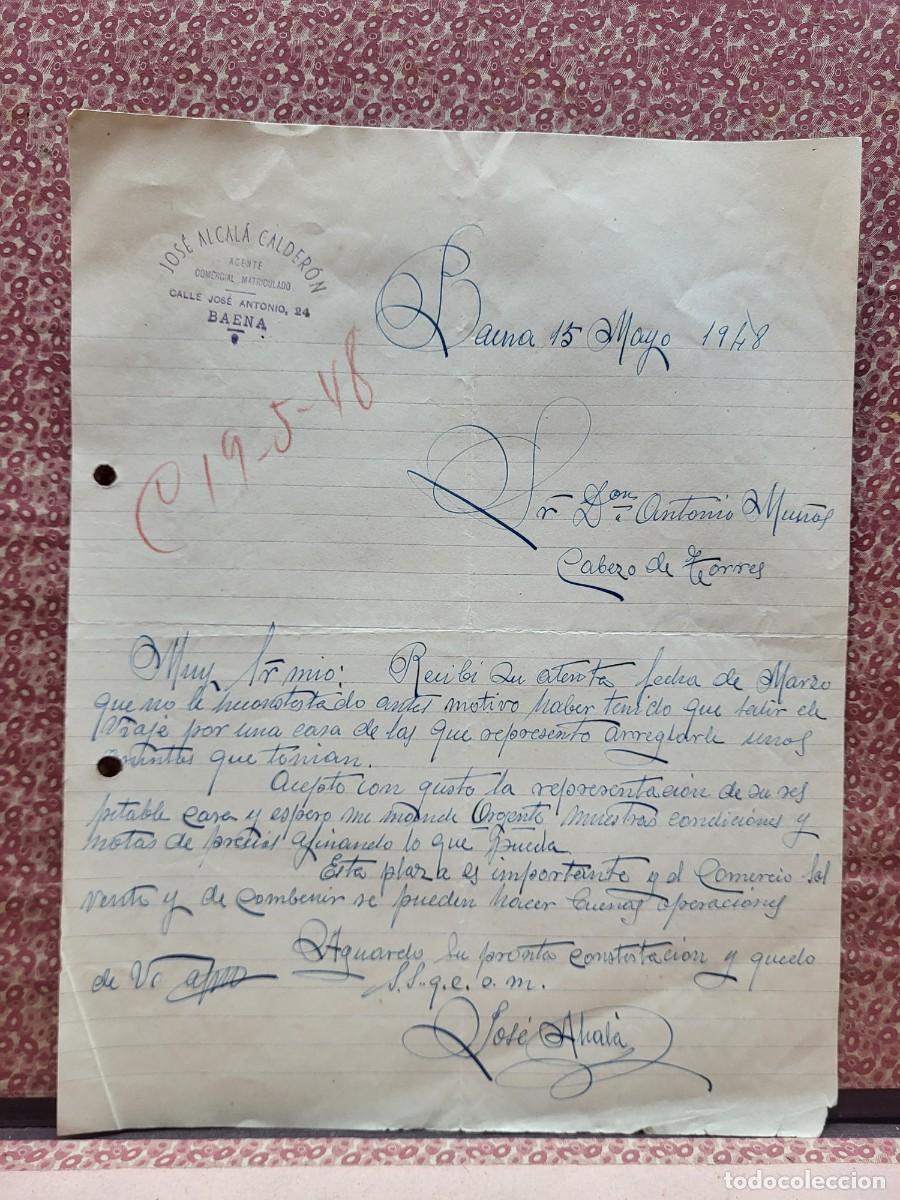 JOSÉ ALCALÁ CALDERÓN
AGENTE
COMERCIAL MATRICULADO
CALLE JOSÉ ANTONIO, 24
BAENA
Baena 15 Mayo 1948
C 19-5-48
Sr Don Antonio Muños
Cabezo de Torres
Muy Sr mio: Recibi su atenta fecha de Marzo
que no le he contestado antes motivo haber tenido que salir de
viaje por una casa de las que represento arreglarle unos
que tenian.
Acepto con gusto la representación de su res
petable casa y espero me mande Urgente muestras condiciónes y
notas de precios afinando lo que pueda.
Esta plaza es importante y el Comercio Sol
vente y de combenir se pueden hacer buenas operaciónes
Aguardo su pronta constestación y quedo
de Vd affmo S.S. q.e.s.m.
José Alcalá
todocoleccion